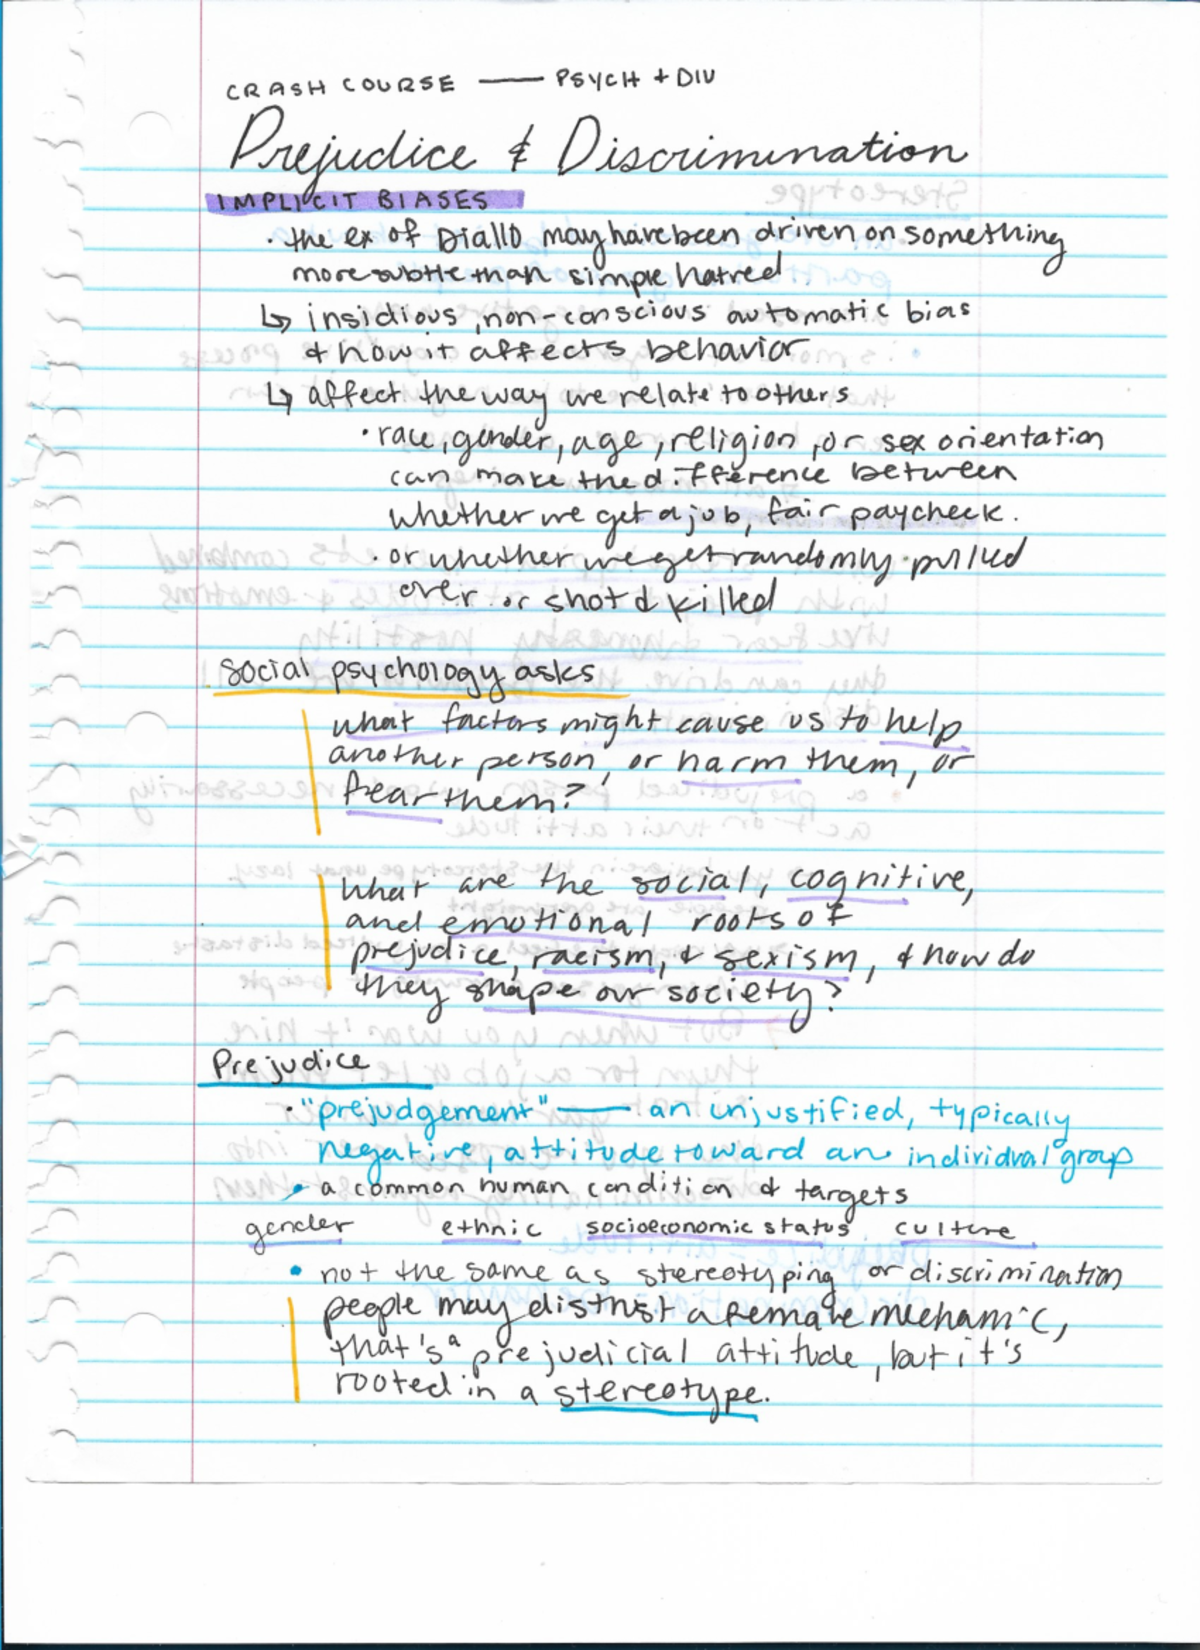 CRASH COURSE — PSYCH + DIV
Prejudice & Discrimination
IMPLICIT BIASES
· the ex of Diallo may have been driven on something
more subtle than simple hatred
↳ insidious, non-conscious automatic bias
& how it affects behavior
↳ affect the way we relate to others
· race, gender, age, religion, or sex orientation
can make the difference between
whether we get a job, fair paycheck.
· or whether we get randomly pulled
over or shot & killed
Social psychology asks
what factors might cause us to help
another person, or harm them, or
fear them?
What are the social, cognitive,
and emotional roots of
prejudice, racism, & sexism, & how do
they shape our society?
Prejudice
· "prejudgement" — an unjustified, typically
negative, attitude toward an individual group
• a common human condition & targets
gender ethnic socioeconomic status culture
• not the same as stereotyping or discrimination
people may distrust a female mechanic,
that's a prejudicial attitude, but it's
rooted in a stereotype.